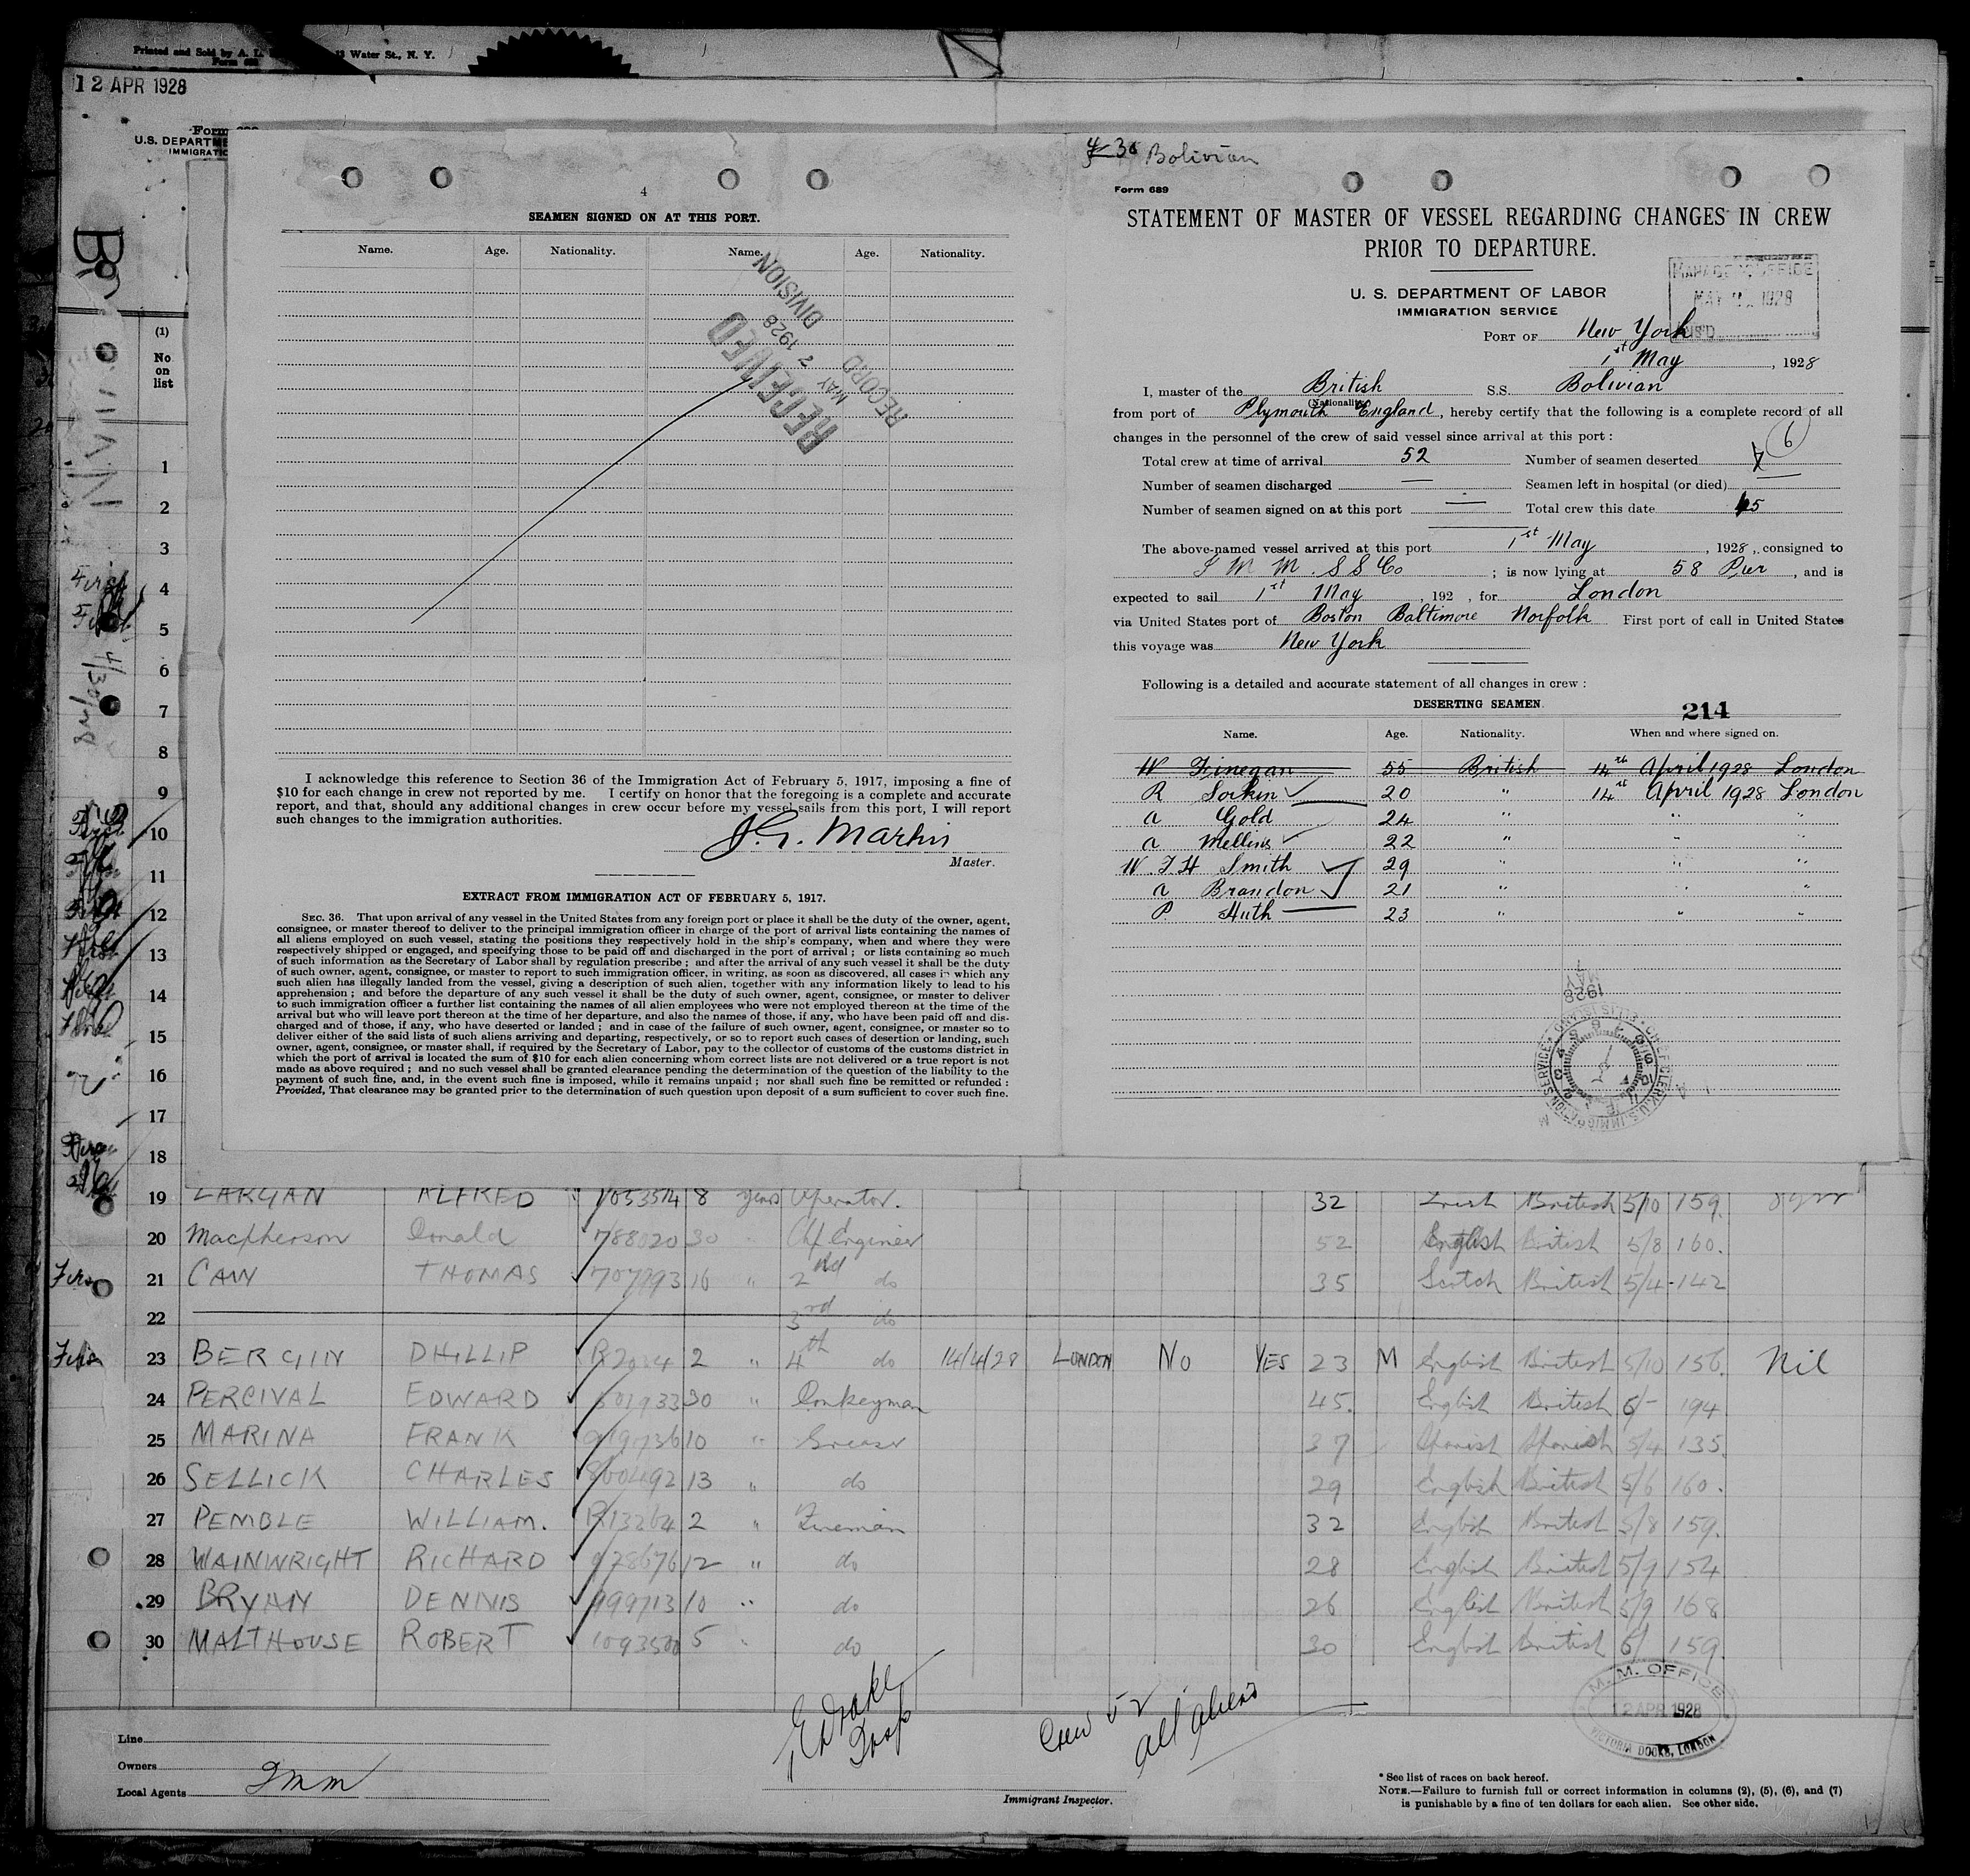 Printed and Sold by A. L. 13 Water St., N. Y.
Form 689
12 APR 1928
Form
U.S. DEPARTME
IMMIGRATIO
(1)
No
on
list
4
SEAMEN SIGNED ON AT THIS PORT.
Name. Age. Nationality. Name. Age. Nationality.
RECEIVED
MAY 7 1928
RECORD DIVISION
I acknowledge this reference to Section 36 of the Immigration Act of February 5, 1917, imposing a fine of
$10 for each change in crew not reported by me. I certify on honor that the foregoing is a complete and accurate
report, and that, should any additional changes in crew occur before my vessel sails from this port, I will report
such changes to the immigration authorities.
J. G. Martin
Master.
EXTRACT FROM IMMIGRATION ACT OF FEBRUARY 5, 1917.
SEC. 36. That upon arrival of any vessel in the United States from any foreign port or place it shall be the duty of the owner, agent,
consignee, or master thereof to deliver to the principal immigration officer in charge of the port of arrival lists containing the names of
all aliens employed on such vessel, stating the positions they respectively hold in the ship's company, when and where they were
respectively shipped or engaged, and specifying those to be paid off and discharged in the port of arrival; or lists containing so much
of such information as the Secretary of Labor shall by regulation prescribe; and after the arrival of any such vessel it shall be the duty
of such owner, agent, consignee, or master to report to such immigration officer, in writing, as soon as discovered, all cases in which any
such alien has illegally landed from the vessel, giving a description of such alien, together with any information likely to lead to his
apprehension; and before the departure of any such vessel it shall be the duty of such owner, agent, consignee, or master to deliver
to such immigration officer a further list containing the names of all alien employees who were not employed thereon at the time of the
arrival but who will leave port thereon at the time of her departure, and also the names of those, if any, who have been paid off and dis-
charged and of those, if any, who have deserted or landed; and in case of the failure of such owner, agent, consignee, or master so to
deliver either of the said lists of such aliens arriving and departing, respectively, or so to report such cases of desertion or landing, such
owner, agent, consignee, or master shall, if required by the Secretary of Labor, pay to the collector of customs of the customs district in
which the port of arrival is located the sum of $10 for each alien concerning whom correct lists are not delivered or a true report is not
made as above required; and no such vessel shall be granted clearance pending the determination of the question of the liability to the
payment of such fine, and, in the event such fine is imposed, while it remains unpaid; nor shall such fine be remitted or refunded:
Provided, That clearance may be granted prior to the determination of such question upon deposit of a sum sufficient to cover such fine.
Bolivian
Form 689
STATEMENT OF MASTER OF VESSEL REGARDING CHANGES IN CREW
PRIOR TO DEPARTURE.
U. S. DEPARTMENT OF LABOR
IMMIGRATION SERVICE
MAY 1928
PORT OF New York
1st May, 1928
I, master of the British S.S. Bolivian
(Nationality)
from port of Plymouth England, hereby certify that the following is a complete record of all
changes in the personnel of the crew of said vessel since arrival at this port:
Total crew at time of arrival 52 Number of seamen deserted 7 6
Number of seamen discharged — Seamen left in hospital (or died) —
Number of seamen signed on at this port — Total crew this date 45
The above-named vessel arrived at this port 1st May, 1928, consigned to
I M M. S S Co; is now lying at 58 Pier, and is
expected to sail 1st May, 192 , for London
via United States port of Boston Baltimore Norfolk First port of call in United States
this voyage was New York
Following is a detailed and accurate statement of all changes in crew:
DESERTING SEAMEN.
214
Name. Age. Nationality. When and where signed on.
W Finegan 55 British 14th April 1928 London
R Sorkin 20 " 14th April 1928 London
A Gold 24 " " "
A Mellins 22 " " "
W. F. H Smith 29 " " "
A Brandon 21 " " "
P Huth 23 " " "
1928
1
2
3
4
5
6
7
8
9
10
11
12
13
14
15
16
17
18
19 LARGAN ALFRED 1053514 8 years Operator. 32 Irish British 5/10 159.
20 Macpherson Donald 788020 30 " Chf Engineer 52 English British 5/8 160.
21 CAW THOMAS 707793 16 " 2nd do 35 Scotch British 5/4 142
22 3rd do
23 BERGIN PHILLIP 2 " 4th do 14/4/28 LONDON NO YES 23 M English British 5/10 156. Nil
24 PERCIVAL EDWARD 30 " Donkeyman 45. English British 6/- 194
25 MARINA FRANK 10 " Greaser 37 Spanish Spanish 5/4 135.
26 SELLICK CHARLES 800492 13 " do 29 English British 5/6 160.
27 PEMBLE WILLIAM. R13264 2 " Fireman 32 English British 5/8 159.
28 WAINWRIGHT RICHARD 978676 12 " do 28 English British 5/7 154
29 BRYAN DENNIS 999713 10 " do 26 English British 5/9 168
30 MALTHOUSE ROBERT 1093500 5 " do 30 English British 6/ 159.
Crew 52
all aliens
I.M.M. OFFICE
12 APR 1928
VICTORIA DOCKS, LONDON
Line
Owners
Local Agents Imm
Immigrant Inspector.
* See list of races on back hereof.
NOTE.—Failure to furnish full or correct information in columns (2), (5), (6), and (7)
is punishable by a fine of ten dollars for each alien. See other side.